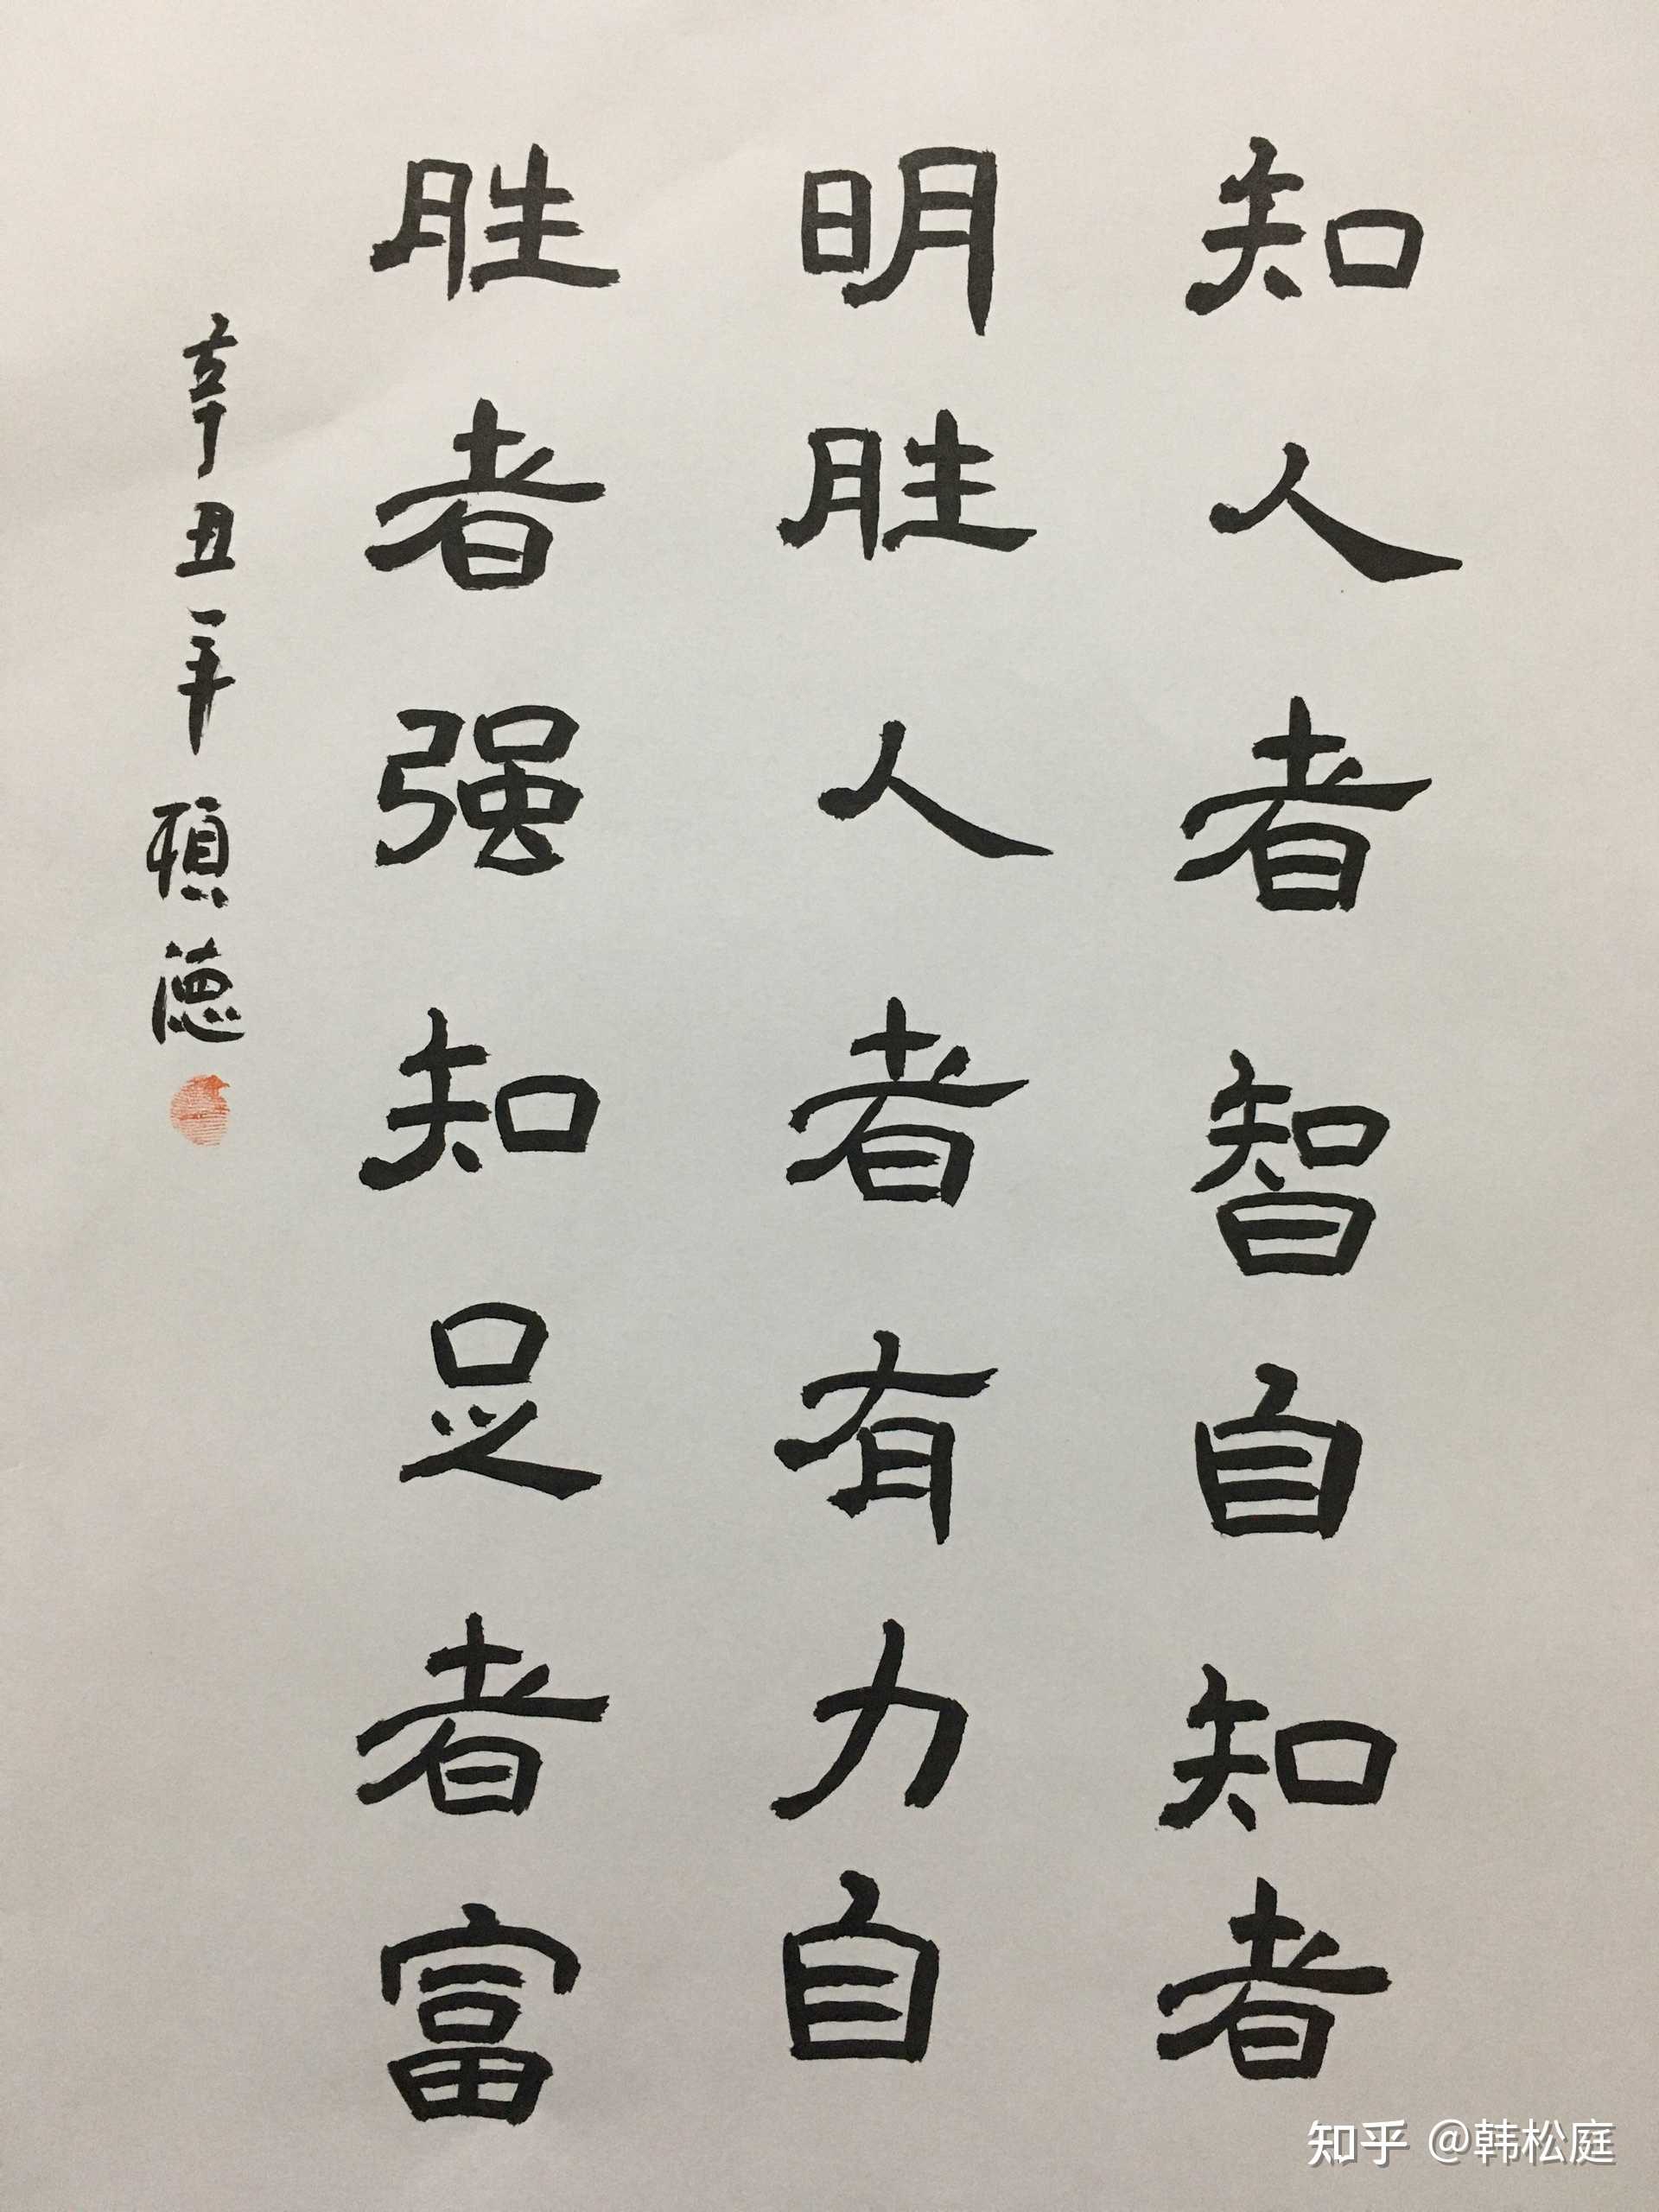 知人者智自知者
明胜人者有力自
胜者强知足者富
辛丑年硕德
知乎 @韩松庭